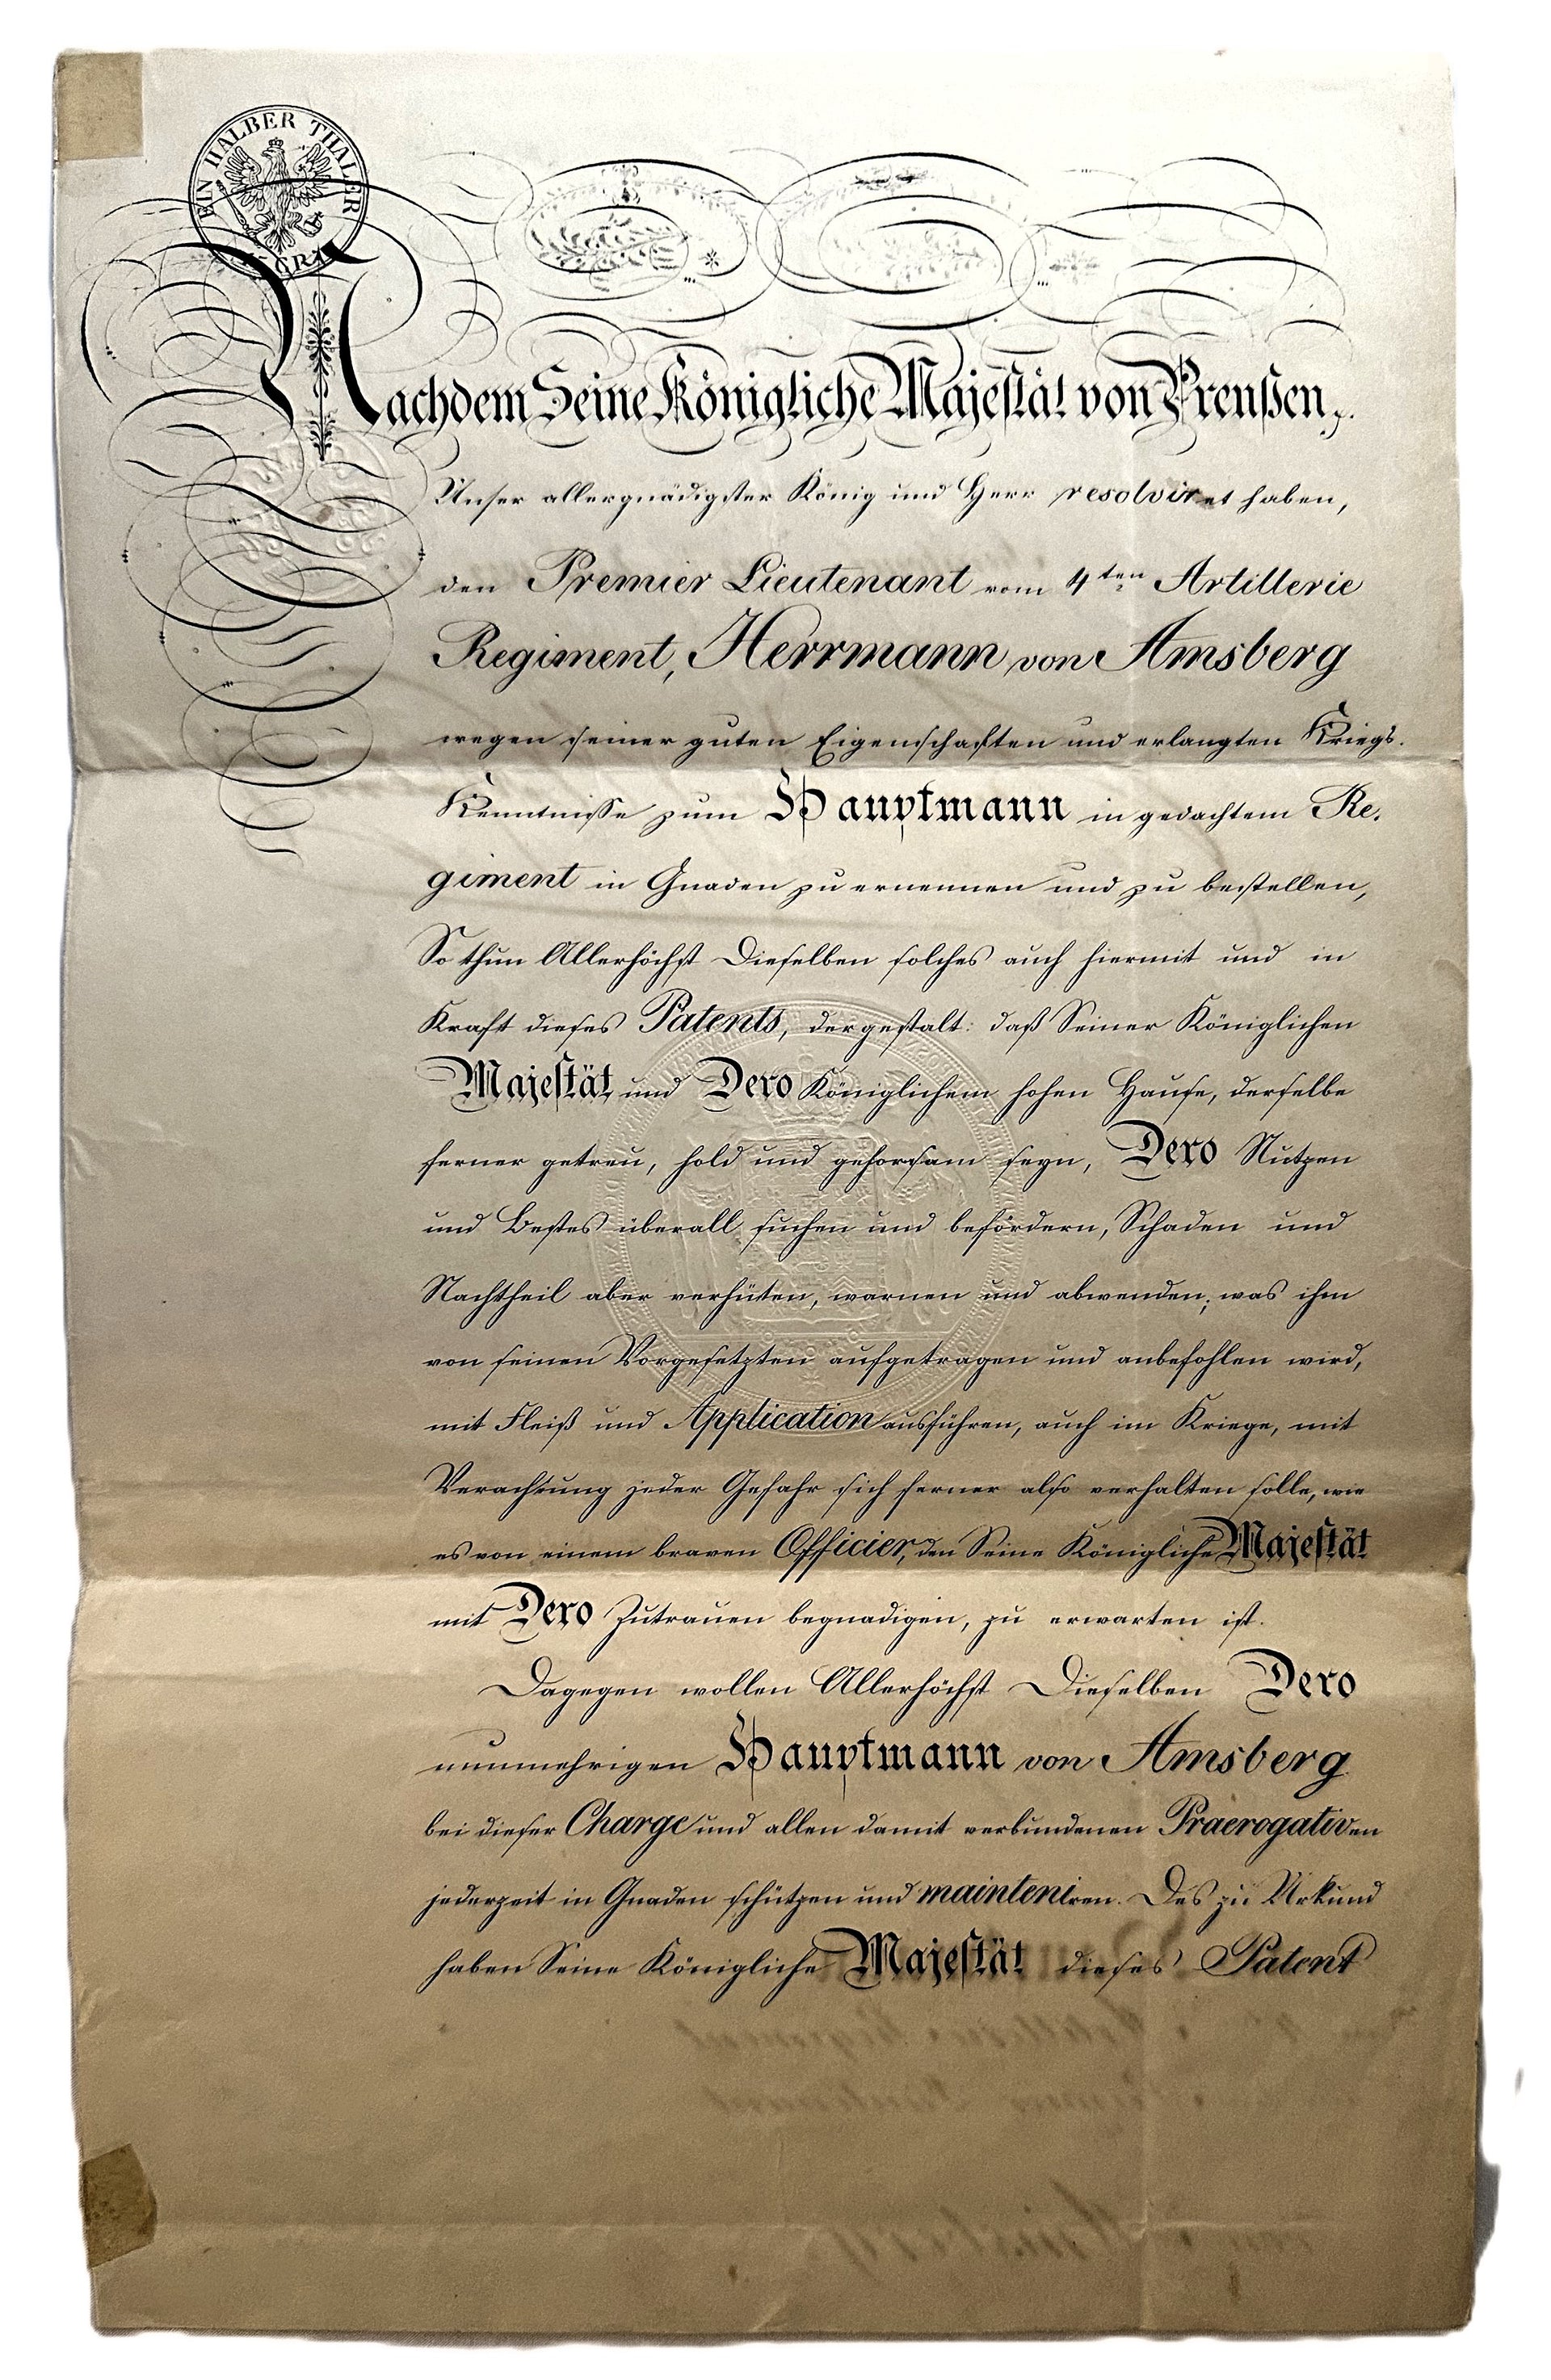 EIN HALBER THALER
Nachdem Seine Königliche Majestät von Preußen,
Unser allergnädigster König und Herr resolviret haben,
den Premier Lieutenant vom 4ten Artillerie
Regiment, Herrmann von Amsberg
wegen seiner guten Eigenschaften und erlangten Kriegs-
Kenntnisse zum Hauptmann in gedachtem Re-
giment in Gnaden zu ernennen und zu bestellen,
So thun Allerhöchst Dieselben solches auch hiermit und in
Kraft dieses Patents, dergestalt: daß Seiner Königlichen
Majestät und Dero Königlichem hohen Hause, derselbe
ferner getreu, hold und gehorsam seyn, Dero Nutzen
und Bestes überall suchen und befördern, Schaden und
Nachtheil aber verhüten, warnen und abwenden; was ihm
von seinen Vorgesetzten aufgetragen und anbefohlen wird,
mit Fleiß und Application ausführen, auch im Kriege, mit
Verachtung jeder Gefahr sich ferner also verhalten solle, wie
es von einem braven Officier, den Seine Königliche Majestät
mit Dero Zutrauen begnadigen, zu erwarten ist.
Dagegen wollen Allerhöchst Dieselben Dero
nunmehrigen Hauptmann von Amsberg
bei dieser Charge und allen damit verbundenen Praerogativen
jederzeit in Gnaden schützen und mainteniren. Des zu Urkund
haben Seine Königliche Majestät dieses Patent